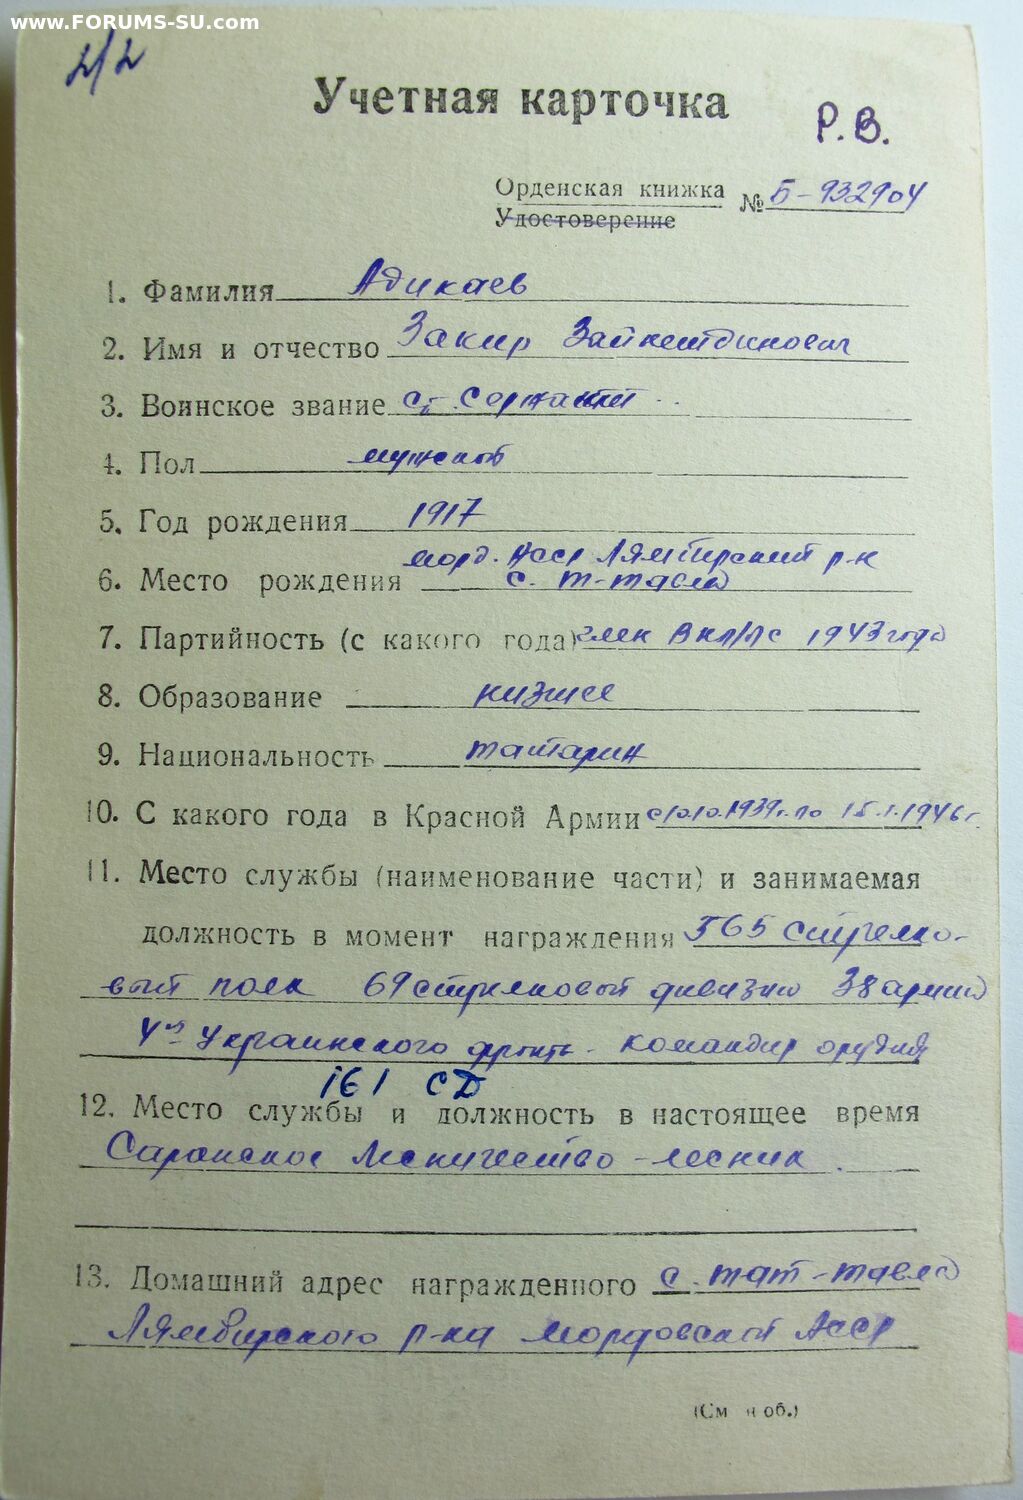 www.FORUMS-SU.com
2/2
Учетная карточка
Р.В.
Орденская книжка
Удостоверение
№ Б-932904
1. Фамилия Адикаев
2. Имя и отчество Закир Зайнетдинович
3. Воинское звание Ст. Сержант
4. Пол мужской
5. Год рождения 1917
морд. Асср Лямбирский р-н
6. Место рождения с. т-тавла
7. Партийность (с какого года) член Вкп/Пс 1943 года
8. Образование низшее
9. Национальность татарин
10. С какого года в Красной Армии с 10.10.1939г. по 15.1.1946г.
11. Место службы (наименование части) и занимаемая
должность в момент награждения 565 стрелко-
вый полк 69 стрелковый дивизии 38 армии
4го Украинского фронта. командир орудия
161 СД
12. Место службы и должность в настоящее время
Саранское Лесничество - лесник.
13. Домашний адрес награжденного с. тат-тавла
Лямбирского р-на мордовской Асср
(См н об.)